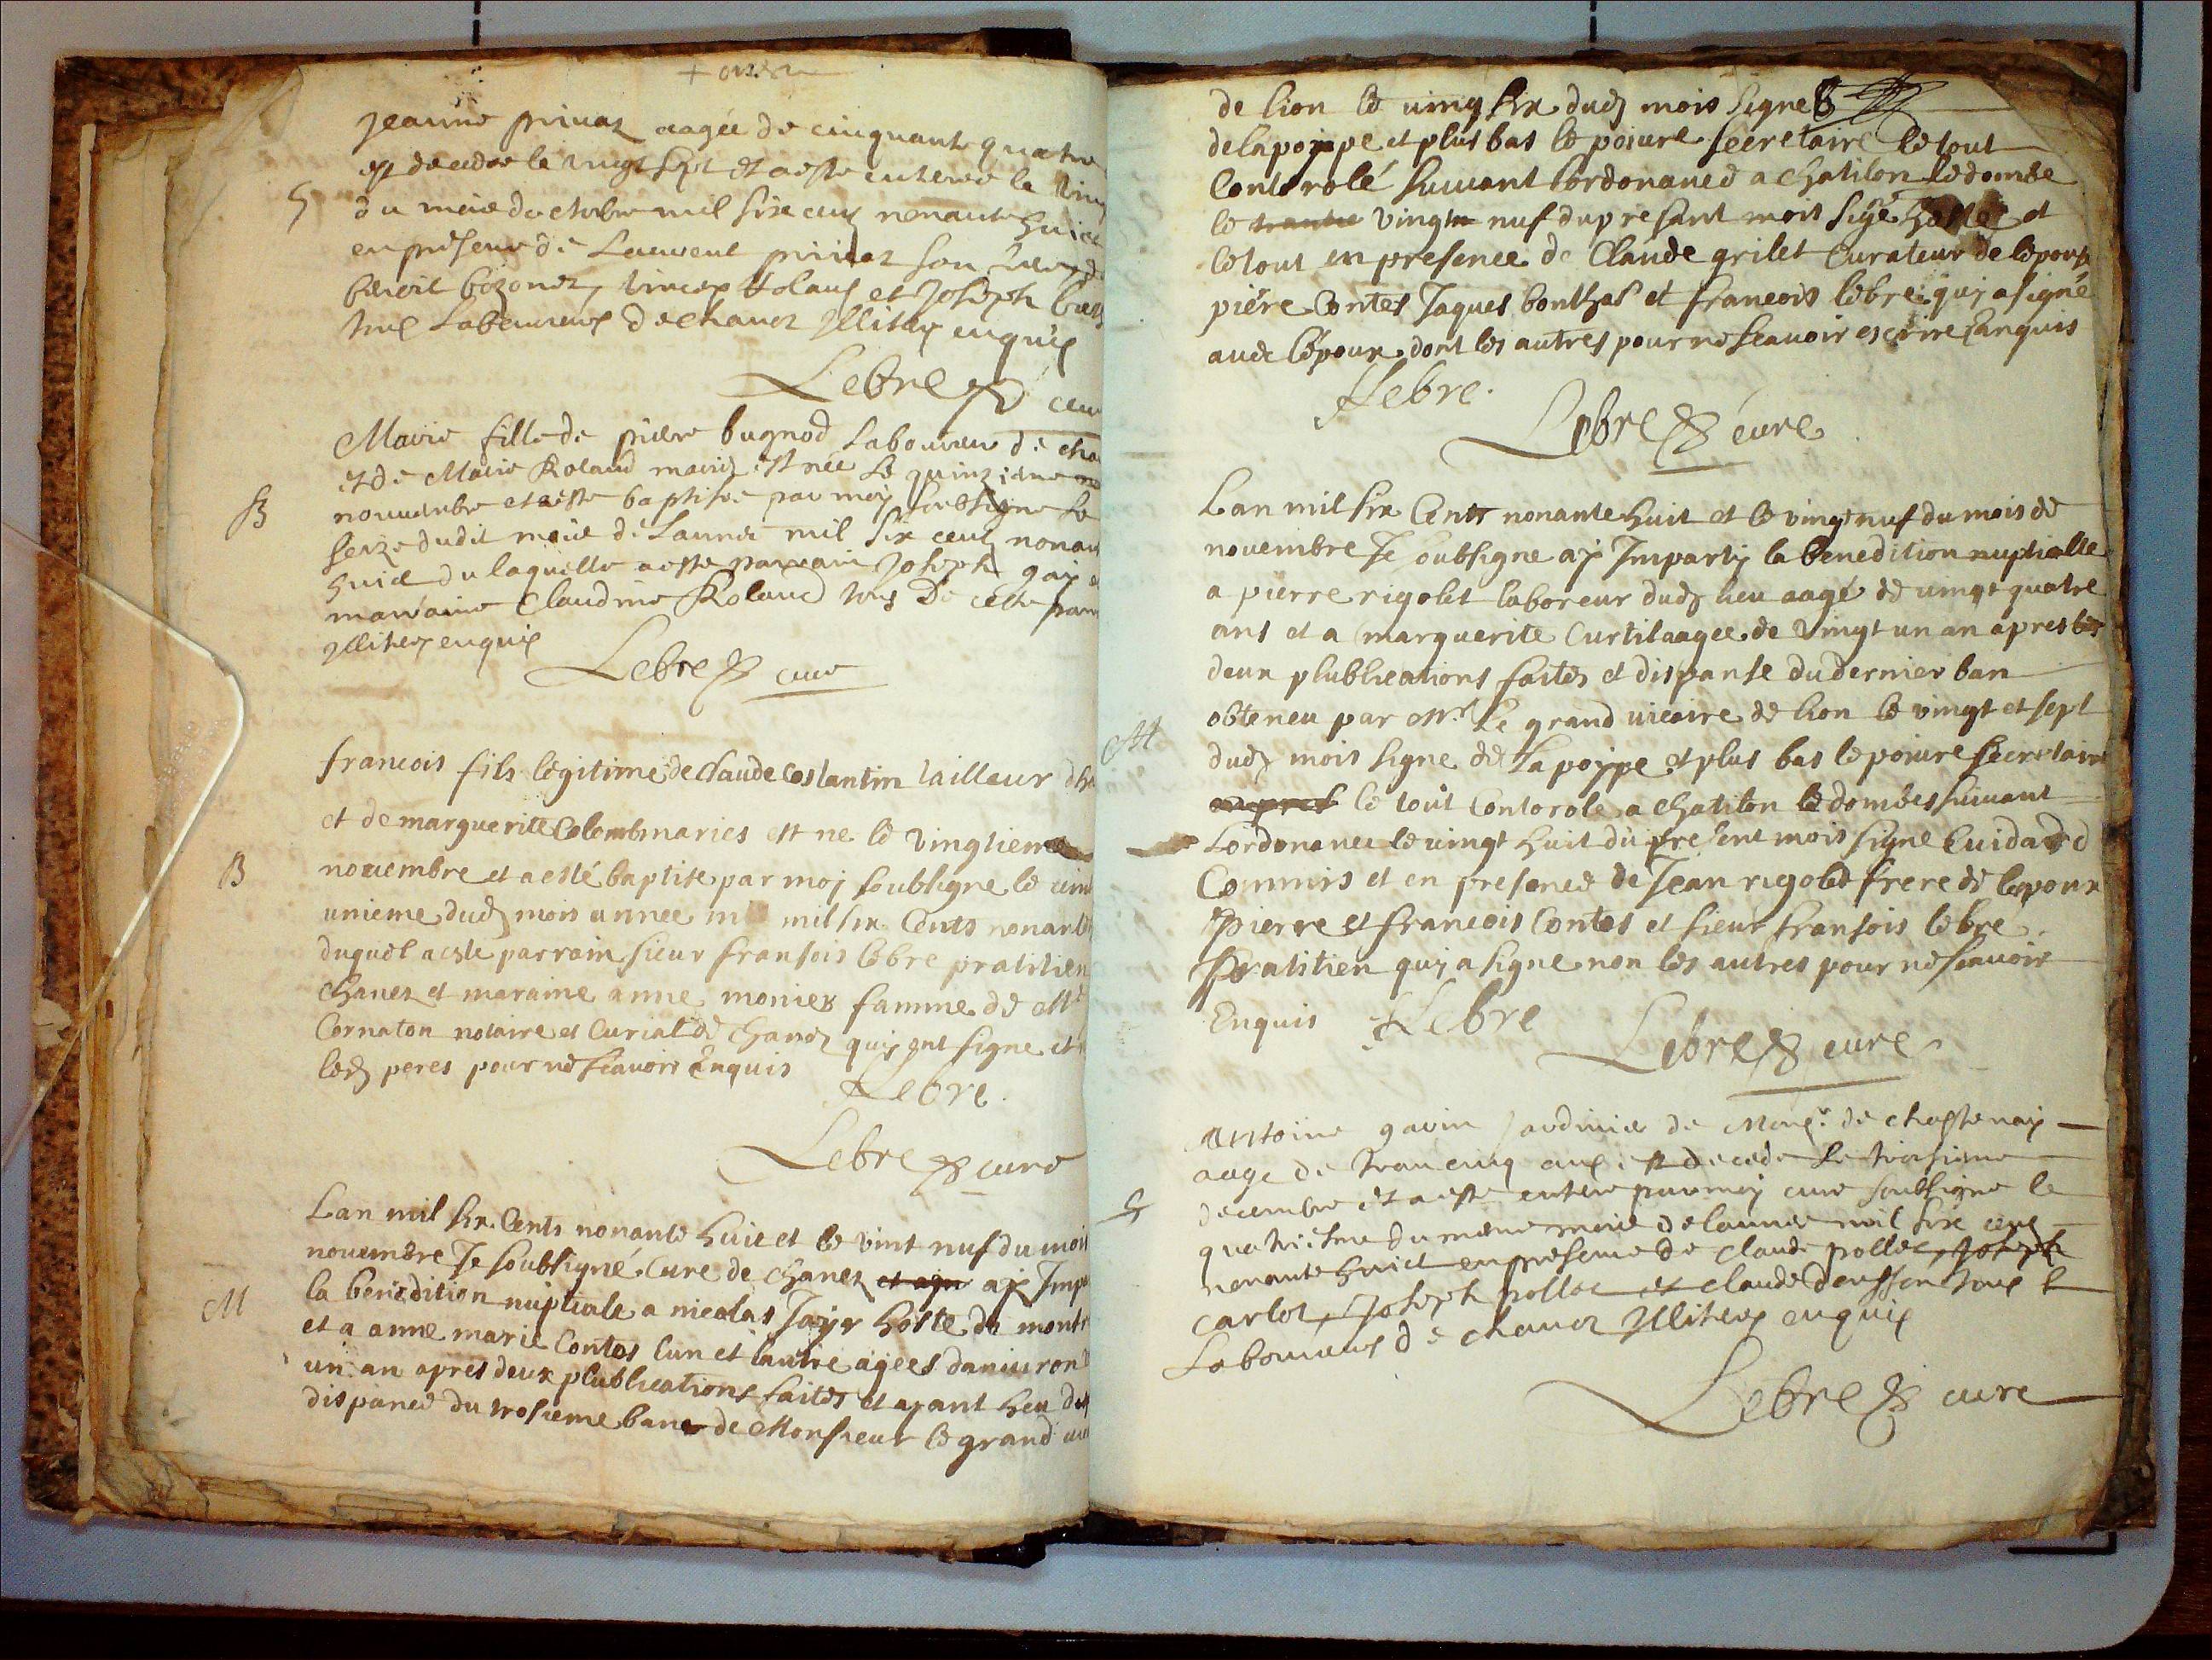 Jeanne privaz aagée de cinquante quatre
est decedee le vingt sept et a esté enteree le ving
S
du mois doctobre mil six cens nonante huict
en presence de Laurent privaz son
benoit bozonet, vincent Roland et Joseph
tous Laboureurs de chanoz Illiteres enquis
Lebre
Marie fille de piere bugnod Laboureur de cha
et de Marie Roland mariez est née le quinzieme
B
novembre et a esté baptisée par moy soubsigne le
seize dudit mois de Lannée mil six cens nonan
huict du laquelle a esté parrain Joseph gay
marraine Claudine Roland tous De cette parr
Illiteres enquis
Lebre cure
francois fils legitime de claude Costantin tailleur
et de marguerite Colomb maries est ne le vingtieme
B
novembre et a esté baptise par moy soubsigne le vint
unieme dud mois annee mil six Cents nonante
duquel a este parrain sieur fransois lebre pratitien
Chanez et maraine anne monier famme de Mr
Cornaton notaire et Curial de Chanoz quy ont signe et
led peres pour ne scavoir Enquis
Lebre.
Lebre cure
Lan mil six Cents nonante huit et le vint nuf du mois
novembre Je soubsigné Cure de chanez et ay Imp
M
la benedition nuptiale a nicolas Jayr hoste de mont
et a anne marie Contes lun et lautre agees danviron
un an apres deux plublications faites et ayant heu
dispance du trosieme banc de Monsieur le grand
de lion le ving six dud mois signe
delapoype et plus bas le poivre secretaire le tout
Contorolé suivant lordonance a chatilon ledombe
le trante vingt nuf du present mois sige et
le tout en presence de Claude grilet Curateur de lepouse
piére Contes Jaques bonthas et francois lebre quy a signé
avec lépoux dont les autres pour ne scavoir escrire Enquis
Lebre.
Lebre cure
Lan mil six Cents nonante huit et le vingt nuf du mois de
novembre Je soubsigne ay Imparty la benedition nuptialle
a pierre rigolet laboreur dud lieu aagé de vingt quatre
ans et a marguerite Curtil aagee de vingt un an apres les
deux plublications faites et dispanse du dernier ban
obteneu par Mr Le grand vicaire de lion le vingt et sept
M
dud mois signe de La poype et plus bas le poivre secretaire
le tout Contorole a chatilon le dombes suivant
Lordonance le vingt huit du present mois signe Cuidard
Commis et en presence de Jean rigolet frere de lepoux
Pierre et francois Contes et sieur fransois lebre
Pratitien quy a signe non les autres pour ne scavoir
Enquis Lebre
Lebre cure
Antoine gavin jardinier de Monsr. de chastenay
aage de tran cinq ans est decede Le troisieme
S
decembre et a esté enteré par moy cure soubsigne le
quatriesme du meme mois de lannée mil six cens
nonante huict en presence de claude pollet, Joseph
carlot, Joseph pollet et claude tous
Laboureurs de chanoz Illiteres enquis
Lebre cure